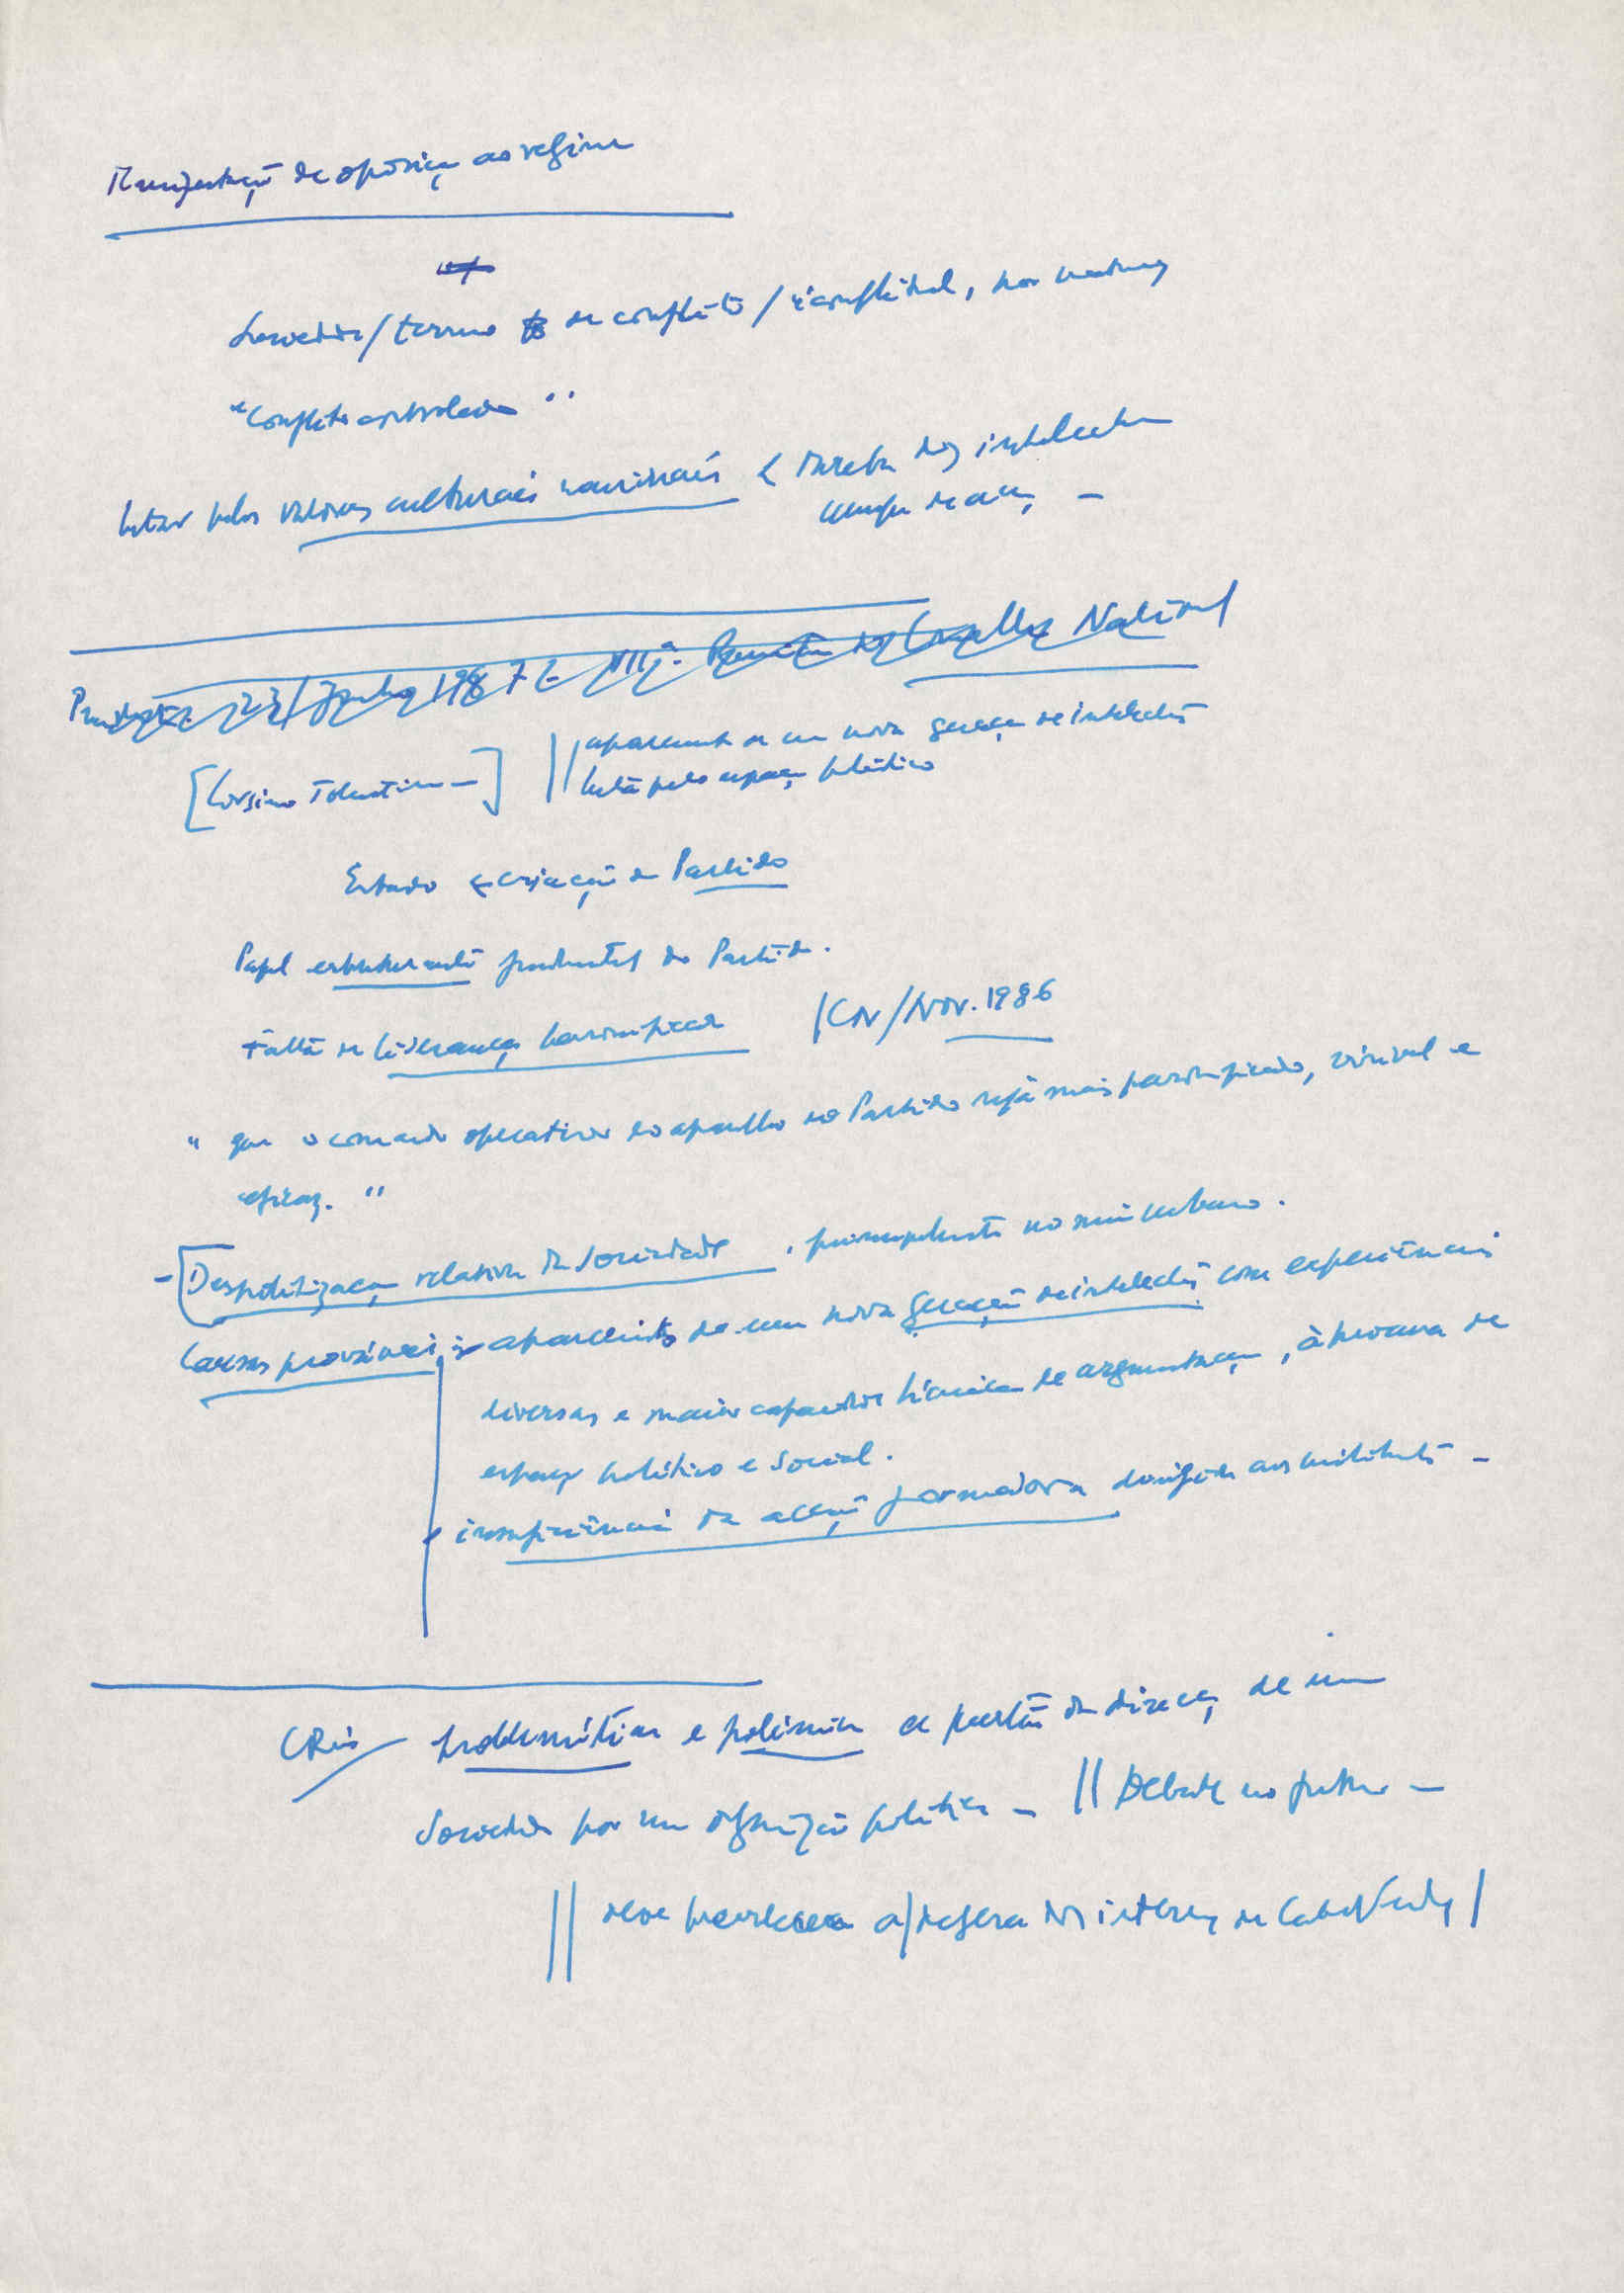 Manifestação de oposição ao regime
Sociedade / terreno de conflito / é conflitual, por
"Conflito controlado"
lutar pelos valores culturais nacionais < tarefa dos intelectuais
de acção -
23/Junho/1987 - VIIª. Reunião do Conselho Nacional
aparecimento de uma nova geração de intelectuais
[Corsino Tolentino -] || luta pelo espaço político
Estado criação do Partido
Papel do Partido.
Falta de liderança personificada /CN/Nov. 1986
" que o comando operativo do aparelho do Partido seja mais personificado, visível e
eficaz. "
- [Despolitização relativa da Sociedade, principalmente no meio urbano.
Causas prováveis: aparecimento de uma nova geração de intelectuais com experiências
diversas e maior capacidade técnica de argumentação, à procura de
espaço político e social.
insuficiência da acção formadora dirigida aos militantes -
problemática e polémica a questão da direcção de uma
Sociedade por uma organização política - || Debate no futuro -
|| deve prevalecer a/defesa dos interesses de Cabo Verde/